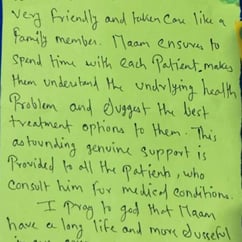 very friendly and taken care like a
family member. Maam ensures to
spend time with each Patient, makes
them understand the undrlying health
Problem and suggest the best
treatment options to them. This
astounding genuine support is
Provided to all the Patients, who
consult him for medical conditions.
I pray to god that Maam
have a long life and more successful